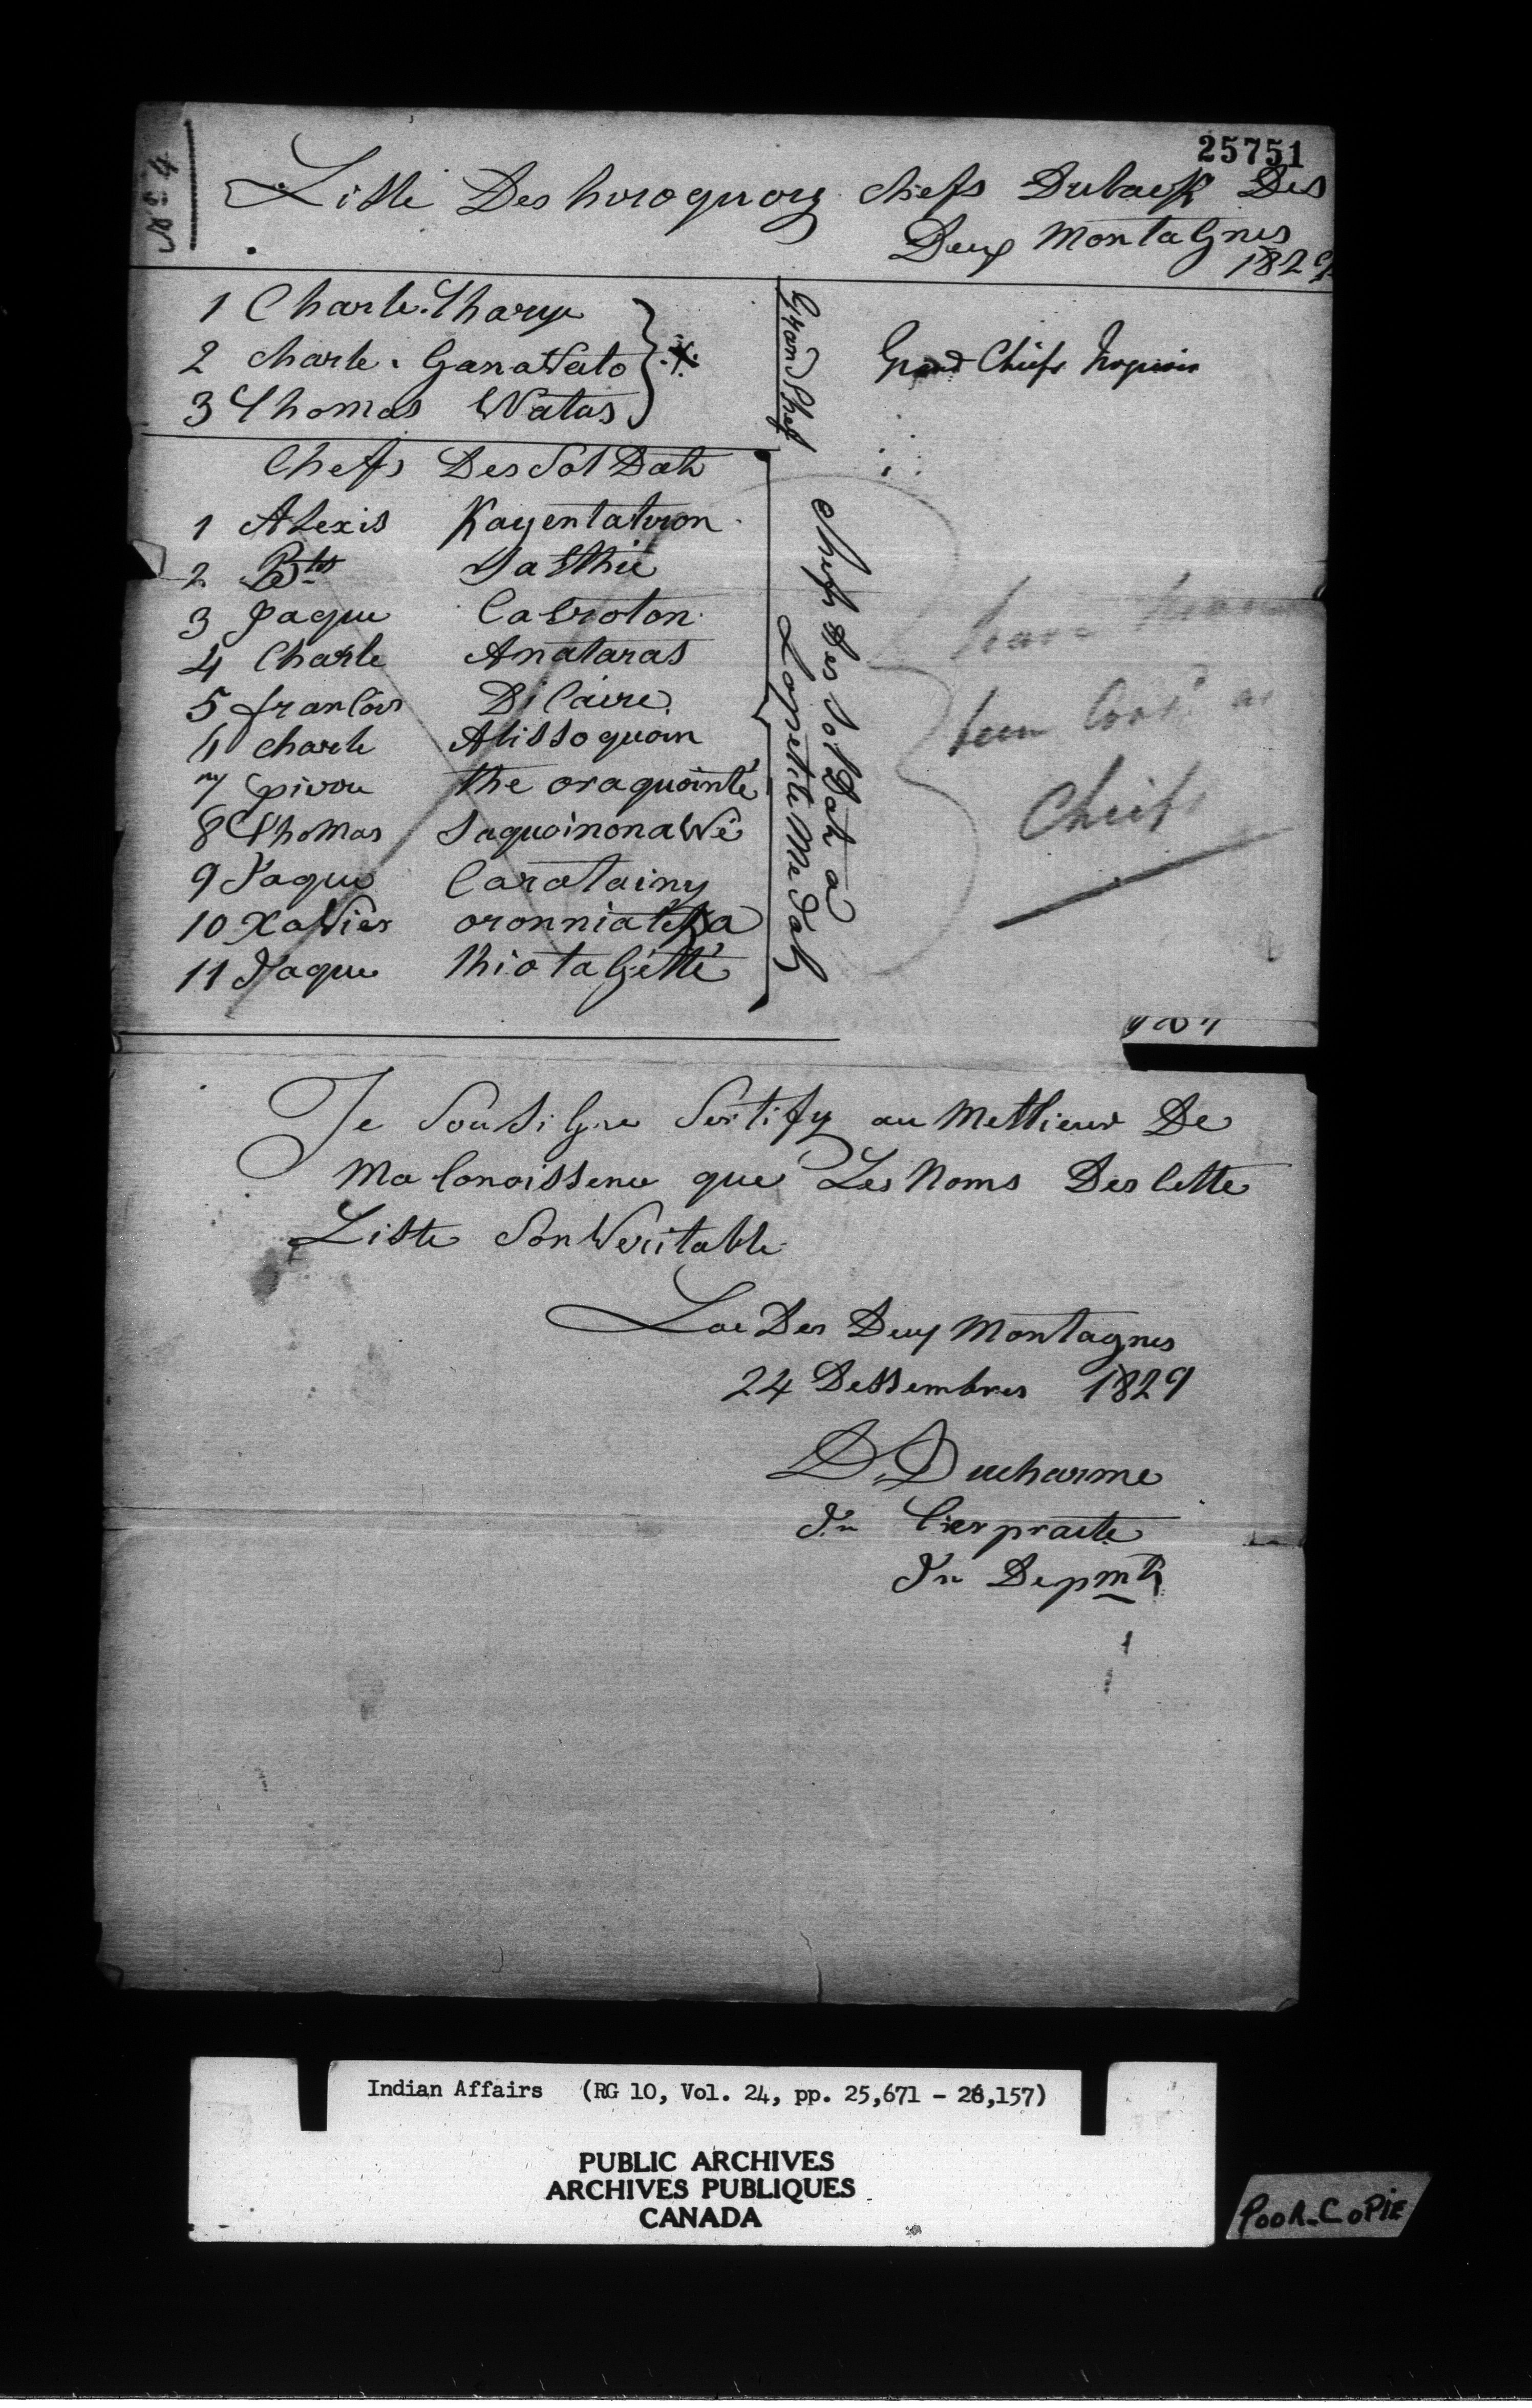 25751
No 4
Liste Des hiroquois chefs Dulack Des
Deux Montagnes
1829
1 Charle. Tharye
2 charle. Ganawato
3 Thomas Watas
Grand Chef
Grand Chiefs Iroquois
Chefs Des Sol Dats
1 Alexis Kayentatiron
2 Bte Sasthie
3 Jaque Cabroton
4 Charle Anataras
5 francois Dilaire
charle Atissoquoin
7 pirou the oraquointé
8 Thomas Saquoinonawé
9 Jaque Caratainy
10 Xavier oronniateka
11 Jaque thiotagetté
Chefs Des Sol Dats a
La petite Medals
have
been as
Chiefs
Je Sousigne Sertify au Mellieur De
Ma Conoissence que Les Noms Des Cette
Liste Son Veritable
Lac Des Deux Montagnes
24 Dessembres 1829
D. Ducharme
In terpraite
In Depmt
Indian Affairs (RG 10, Vol. 24, pp. 25,671 - 26,157)
PUBLIC ARCHIVES
ARCHIVES PUBLIQUES
CANADA
POOR COPIE